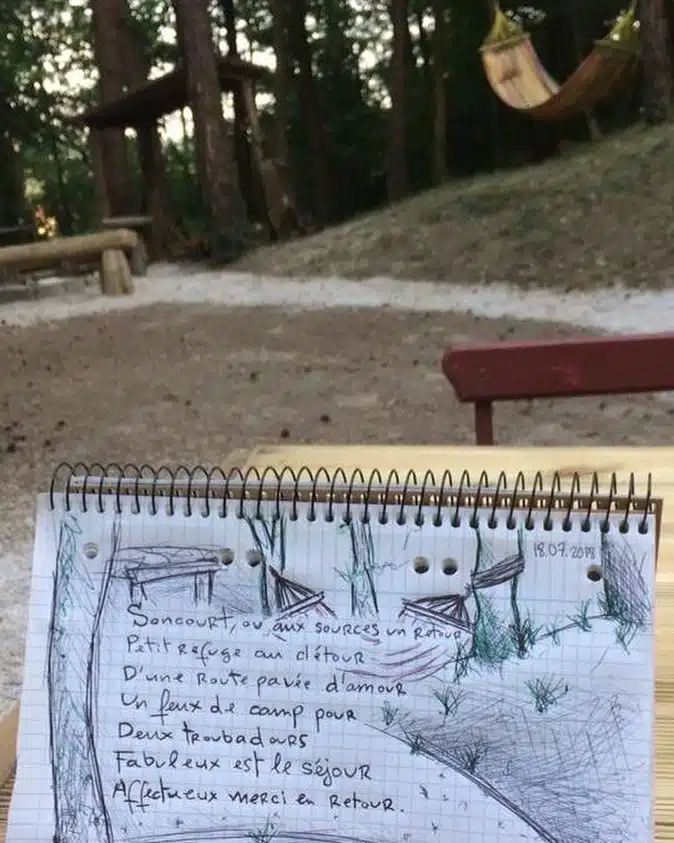 18.07.2018
Soncourt, ou aux sources un Retour
Petit Refuge au détour
D'une Route pavée d'amour
Un feux de camp pour
Deux troubadours
Fabuleux est le séjour
Affectueux merci en Retour.